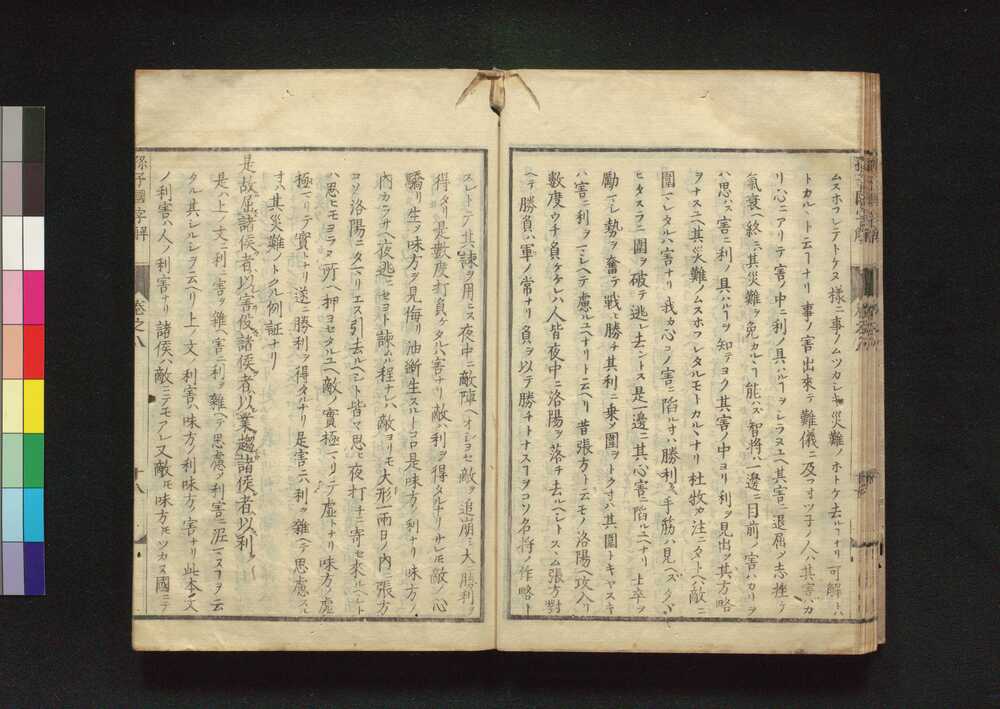 ムスホフレテトケヌ様ニ事ノムツカレキ災難ノホトケ去ルヿナリ可解トハ
トカルヽト云ヿナリ事ノ害出來テ難儀ニ及フオツ子ノ人ハ其害ハカ
リ心ニアリテ害ノ中ニ利ノ具ハルヿヲシラヌユヘ其害ニ退屈ノ志挫ケ
氣衰ヘ終ニ其災難ヲ免カルヽヿ能ハズ智將ハ一邊ニ目前ノ害ハカリヲ
ハ思ハズ害ニ利ノ具ハルヿヲ知テヨク其害ノ中ヨリ利ヲ見出ヲ其方略
ヲナスユヘ其災難ノムスホフレタルモトカルヽナリ杜牧カ注ニタトヘハ敵ニ
圍マレタルハ害ナリ我カ心コノ害ニ陷ルオハ勝利ノ手筋ハ見ヘズタヾ
ヒタスラニ圍ヲ破テ逃レ去ントス是一邊ニ其心害ニ陷ルユヘナリ士卒ヲ
勵マレ勢ヲ奮テ戰ヒ勝チ其利ニ乗ノ圍ヲトクオハ其圍トキヤスキ
ハ害ニ利ヲマレヘテ慮ルユヘナリト云ヘリ昔張方ト云モノ洛陽ヘ攻入リ
數度ウチ負ケケレハ人皆夜中ニ洛陽ヲ落チ去ルヘレトスヽム張方對
ヘテ勝負ハ軍ノ常ナリ負ヲ以テ勝チトナスヿヲコソ名將ノ作略ト
スレトテ其諫ヲ用ニス夜中ニ敵陣ヘオシヨセ敵ヲ追崩シ大ニ勝利ヲ
得タリ是數度打負ケタルハ害ナリ敵ハ利ヲ得タルナリサレモ敵ノ心
驕リ生ヲ味方ヲ見侮リ油斷生スルトコロ是味方ノ利ナリ味方ノ
内カラサヘ夜逃ニセヨト諫ムル程ナレハ敵ヨリモ大形一兩日ノ内ニ張方
コソ洛陽ニタマリエス引去ルヘシト皆マ思ヒ夜打ナニ寄セ來ルヘレト
ハ思ヒモヨラヌ所ヘ押ヨセタルユヘ敵ノ實極マリテ虚トナリ味方ノ虚
極マリテ實トナリ遂ニ勝利ヲ得タルナリ是害ニ利ヲ雜ヘテ思慮スル
オハ其災難ノトクル例証ナリ
是故屈諸侯者以害役諸侯者以業趨諸侯者以利
是ハ上ノ文ニ利ニ害ヲ雜ヘ害ニ利ヲ雜ヘテ思慮ノ利害ニ泥マヌヿヲ云
タル其シルレヲ云ヘリ上ノ文ノ利害ハ味方ノ利味方ノ害ナリ此本文
ノ利害ハ人ノ利害ナリ諸侯ハ敵ニテモアレ又敵モ味方モツカヌ國ニテ
孫子國字解
卷之八
十八